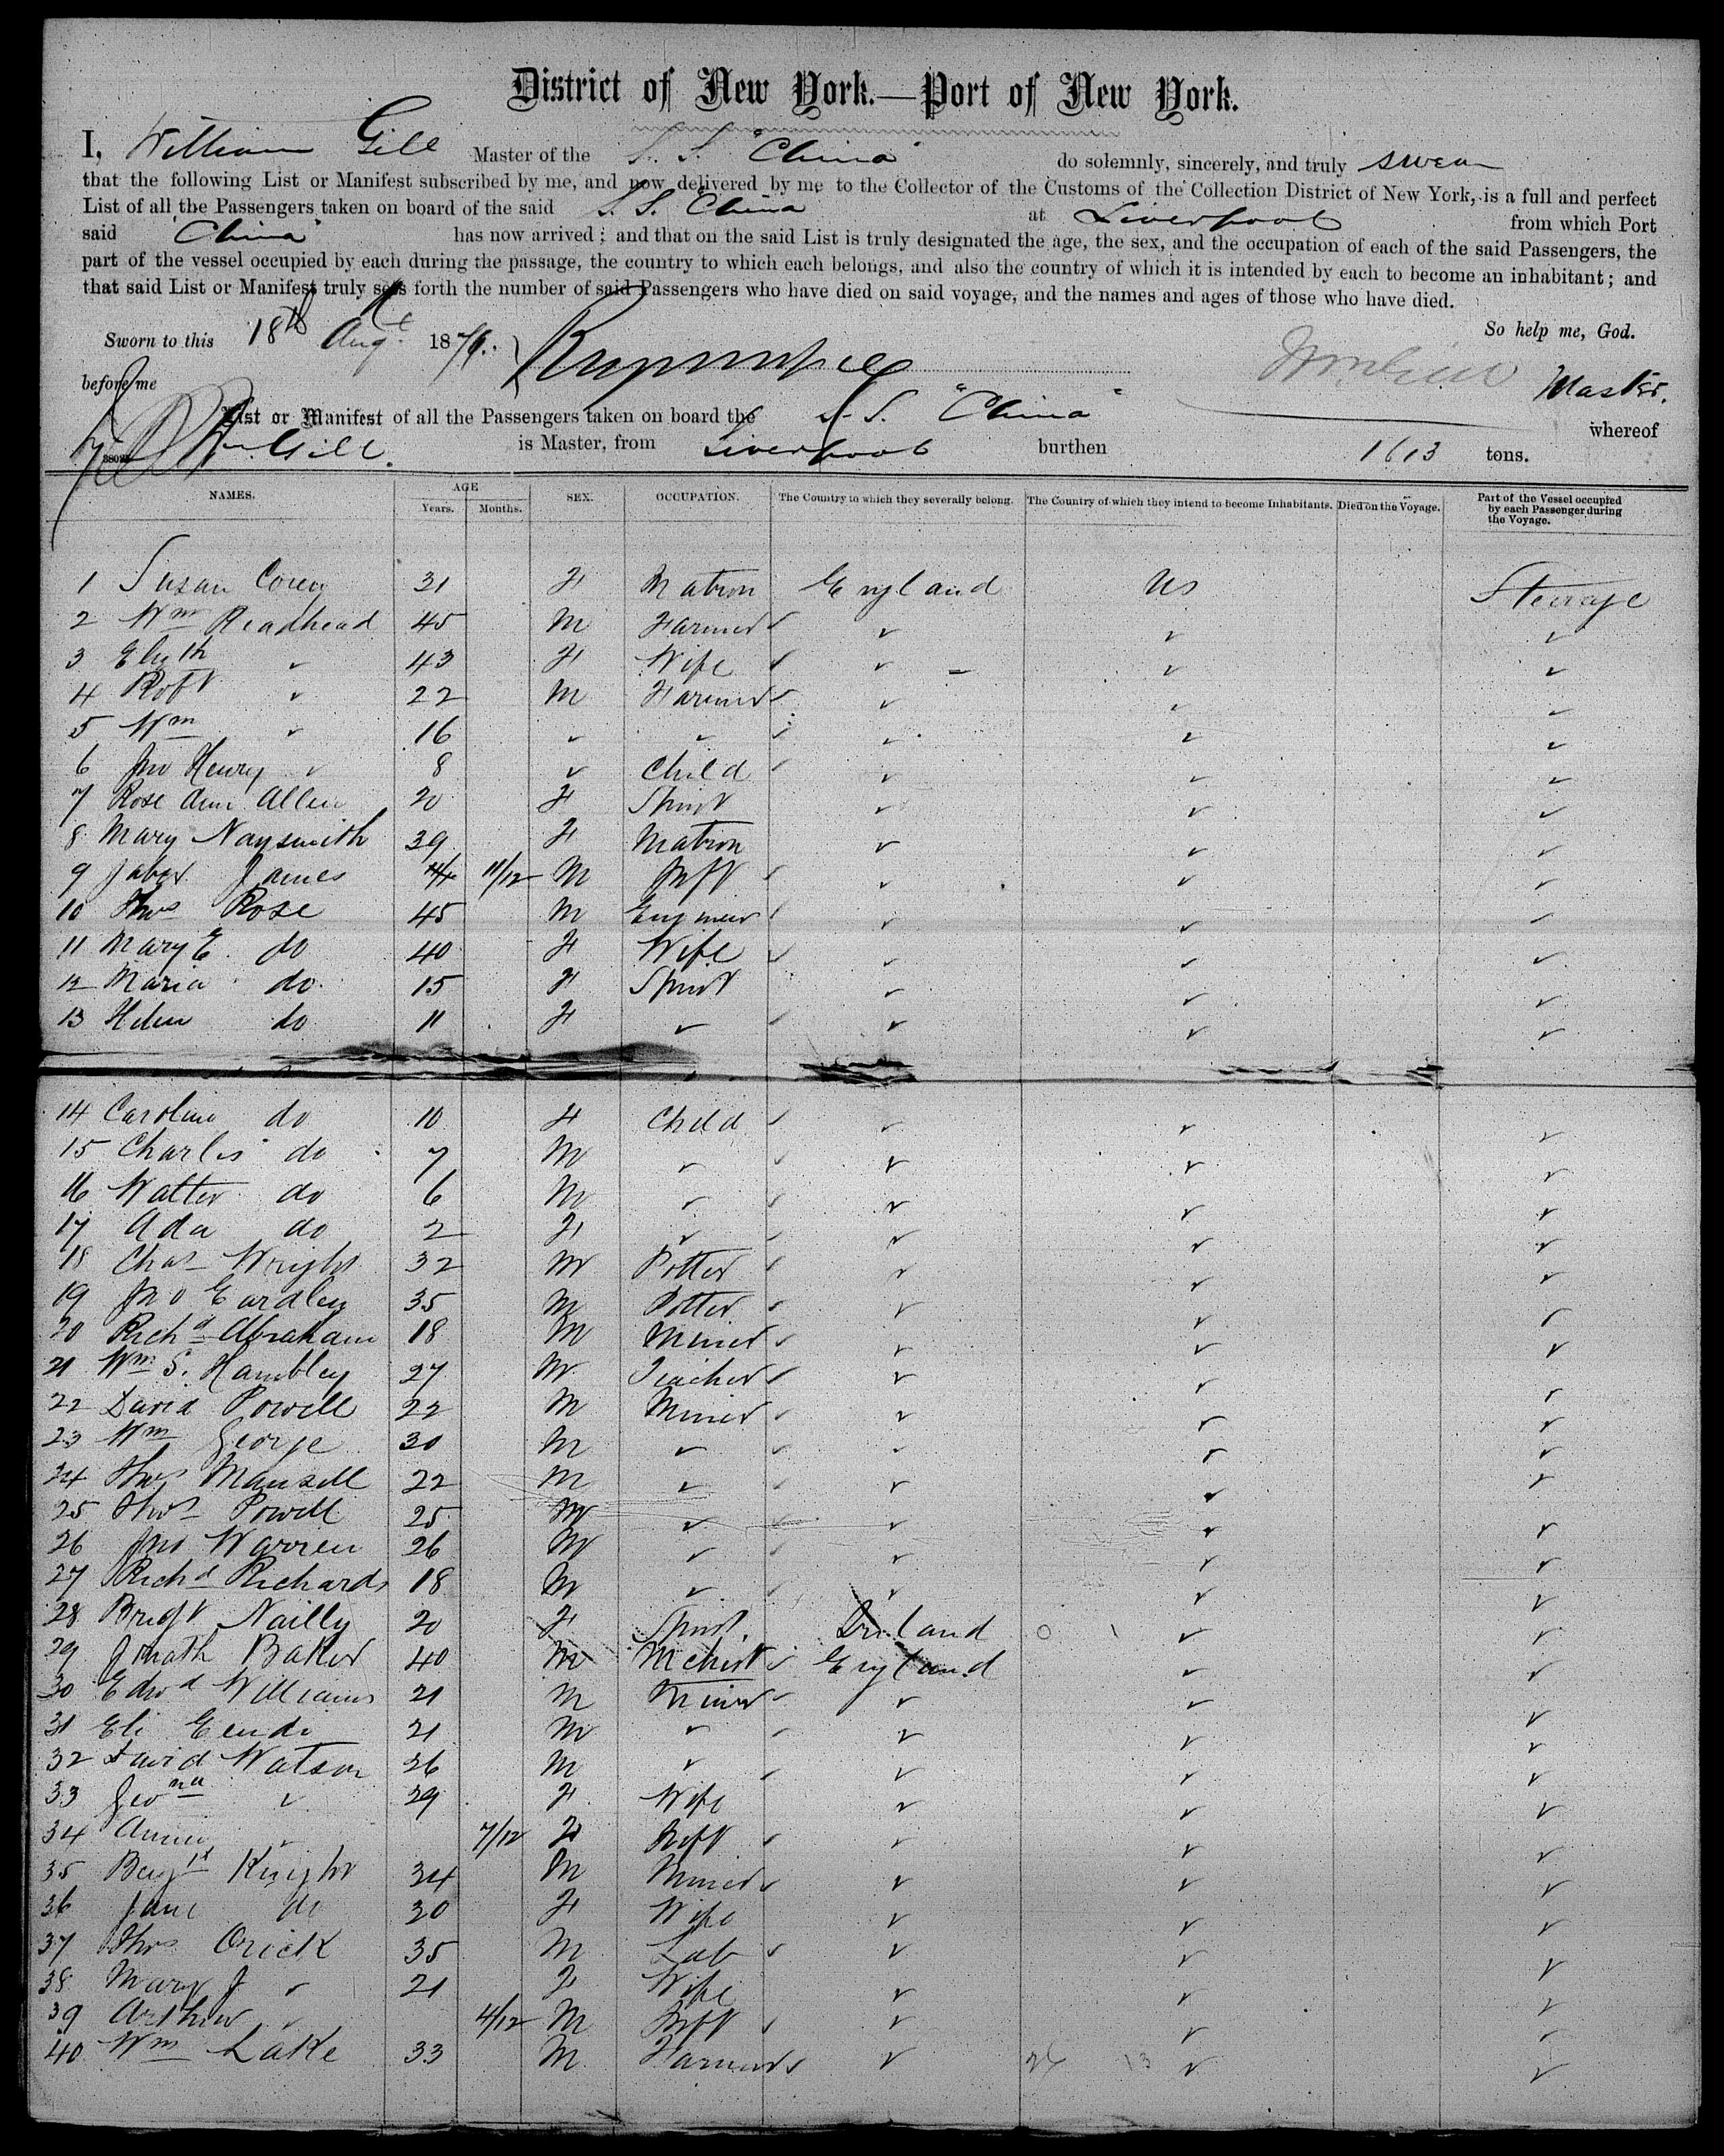 District of New York.—Port of New York.
I, William Gill Master of the S. S. "China" do solemnly, sincerely, and truly swear
that the following List or Manifest subscribed by me, and now delivered by me to the Collector of the Customs of the Collection District of New York, is a full and perfect
List of all the Passengers taken on board of the said S. S. China at Liverpool from which Port
said "China" has now arrived; and that on the said List is truly designated the age, the sex, and the occupation of each of the said Passengers, the
part of the vessel occupied by each during the passage, the country to which each belongs, and also the country of which it is intended by each to become an inhabitant; and
that said List or Manifest truly sets forth the number of said Passengers who have died on said voyage, and the names and ages of those who have died.
So help me, God.
Sworn to this 18th Augt 187
before me Wm Gill Master.
List or Manifest of all the Passengers taken on board the S. S. "China" whereof
Wm Gill. is Master, from Liverpool burthen 1613 tons.
NAMES. AGE Years. Months. SEX. OCCUPATION. The Country to which they severally belong. The Country of which they intend to become Inhabitants. Died on the Voyage. Part of the Vessel occupied by each Passenger during the Voyage.
1 Susan 31 F Matron England US Steerage
2 Wm Readhead 45 M Farmer ✓ ✓ ✓
3 Elizth ✓ 43 F Wife ✓ ✓ ✓
4 Robt ✓ 22 M Farmer ✓ ✓ ✓
5 Wm ✓ 16 ✓ ✓ ✓ ✓ ✓
6 Jno Henry ✓ 8 ✓ Child ✓ ✓ ✓
7 Rose Ann Allen 20 F Spinst ✓ ✓ ✓
8 Mary Naysmith 39 F Matron ✓ ✓ ✓
9 Jabez James 11/12 M Inft ✓ ✓ ✓
10 Thos Rose 45 M Engineer ✓ ✓ ✓
11 Mary E. do 40 F Wife ✓ ✓ ✓
12 Maria do 15 F Spinst ✓ ✓ ✓
13 Helen do 11 F ✓ ✓ ✓ ✓
14 Caroline do 10 F Child ✓ ✓ ✓
15 Charles do 7 M ✓ ✓ ✓ ✓
16 Walter do 6 M ✓ ✓ ✓ ✓
17 Ada do 2 F ✓ ✓ ✓ ✓
18 Chas Wright 32 M Potter ✓ ✓ ✓
19 Jno Eardley 35 M Potter ✓ ✓ ✓
20 Richd Abraham 18 M Miner ✓ ✓ ✓
21 Wm S. Hambley 27 M Teacher ✓ ✓ ✓
22 David Powell 22 M Miner ✓ ✓ ✓
23 Wm George 30 M ✓ ✓ ✓ ✓
24 Thos Mansell 22 M ✓ ✓ ✓ ✓
25 Thos Powell 25 M ✓ ✓ ✓ ✓
26 Jno Warren 26 M ✓ ✓ ✓ ✓
27 Richd Richards 18 M ✓ ✓ ✓ ✓
28 Bridgt Nailly 20 F Spinst. Ireland ✓ ✓
29 Jonath Baker 40 M Mchist England ✓ ✓
30 Edwd Williams 21 M Miner ✓ ✓ ✓
31 Eli 21 M ✓ ✓ ✓ ✓
32 David Watson 26 M ✓ ✓ ✓ ✓
33 Geona ✓ 29 F Wife ✓ ✓ ✓
34 Annie ✓ 7/12 F Inft ✓ ✓ ✓
35 Benj Knight 34 M Miner ✓ ✓ ✓
36 Jane do 30 F Wife ✓ ✓ ✓
37 Thos Orick 35 M Lab ✓ ✓ ✓
38 Mary J ✓ 21 F Wife ✓ ✓ ✓
39 Arthur ✓ 4/12 M Inft ✓ ✓ ✓
40 Wm Lake 33 M Farmer ✓ ✓ ✓